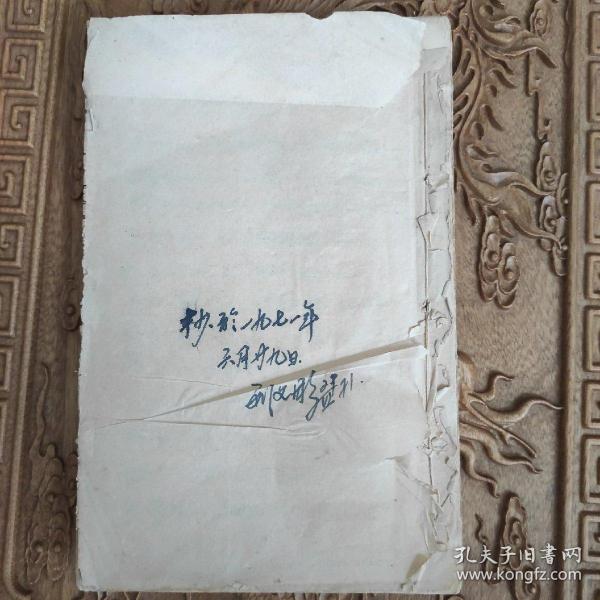 抄於一九七一年
六月廿九日.
孔夫子旧書网
www.kongfz.com